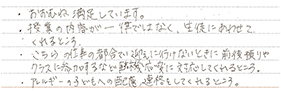 ・おおむね満足しています。
・授業の内容が一律ではなく、生徒にあわせて
くれるところ。
・こちらの仕事の都合で迎えに行けないときに前後預りや
クラスに参加するなど臨機応変に対応してくれるところ。
・アレルギーの子どもへの配慮、連絡もしてくれるところ。